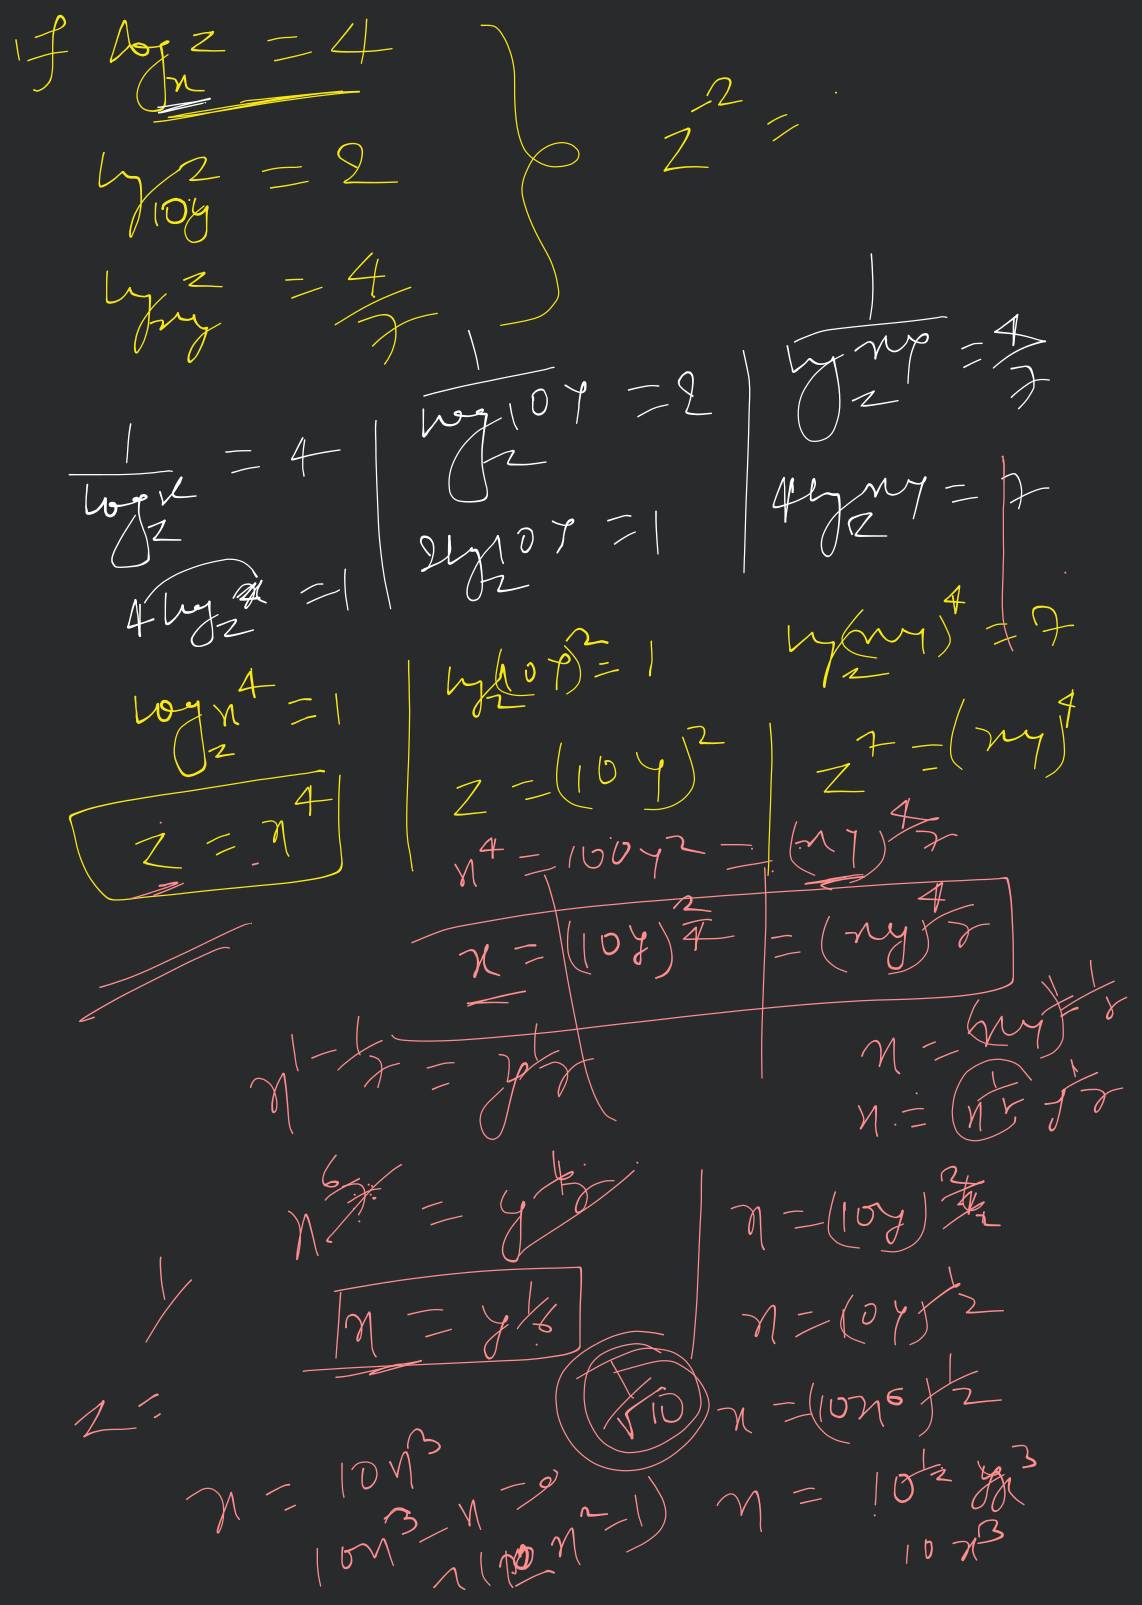 if log_x z = 4
log_10y z = 2
log_xy z = 4/7
z^-2 =
1/(log_z x) = 4
4 log_z x = 1
log_z x^4 = 1
z = x^4
1/(log_z 10y) = 2
2 log_z 10y = 1
log_z (10y)^2 = 1
z = (10y)^2
1/(log_z xy) = 4/7
4 log_z xy = 7
log_z (xy)^4 = 7
z^7 = (xy)^4
x^4 = 100y^2 = (xy)^4/7
x = (10y)^2/4 = (xy)^4/7
x = (xy)^1/7
x = x^1/7 y^1/7
x^1-1/7 = y^1/7
x^6/7 = y^1/7
x = y^1/6
x = (10y)^2/4
x = (10y)^1/2
x = (10x^6)^1/2
x = 10^1/2 x^3
10 x^3
1/√10
z =
x = 10x^3
10x^3 - x = 0
x(10x^2-1)